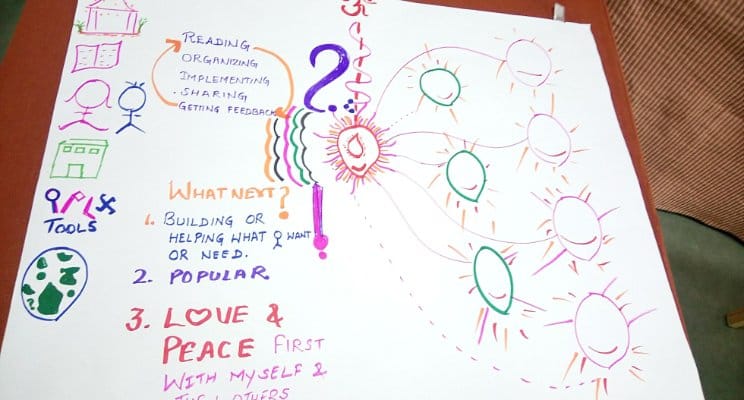 READING
ORGANIZING
IMPLEMENTING
. SHARING
GETTING FEEDBACK
?
!
TOOLS
WHAT NEXT?
1. BUILDING OR
HELPING WHAT WANT
OR NEED.
2. POPULAR
3. LOVE &
PEACE FIRST
WITH MYSELF &
OTHERS